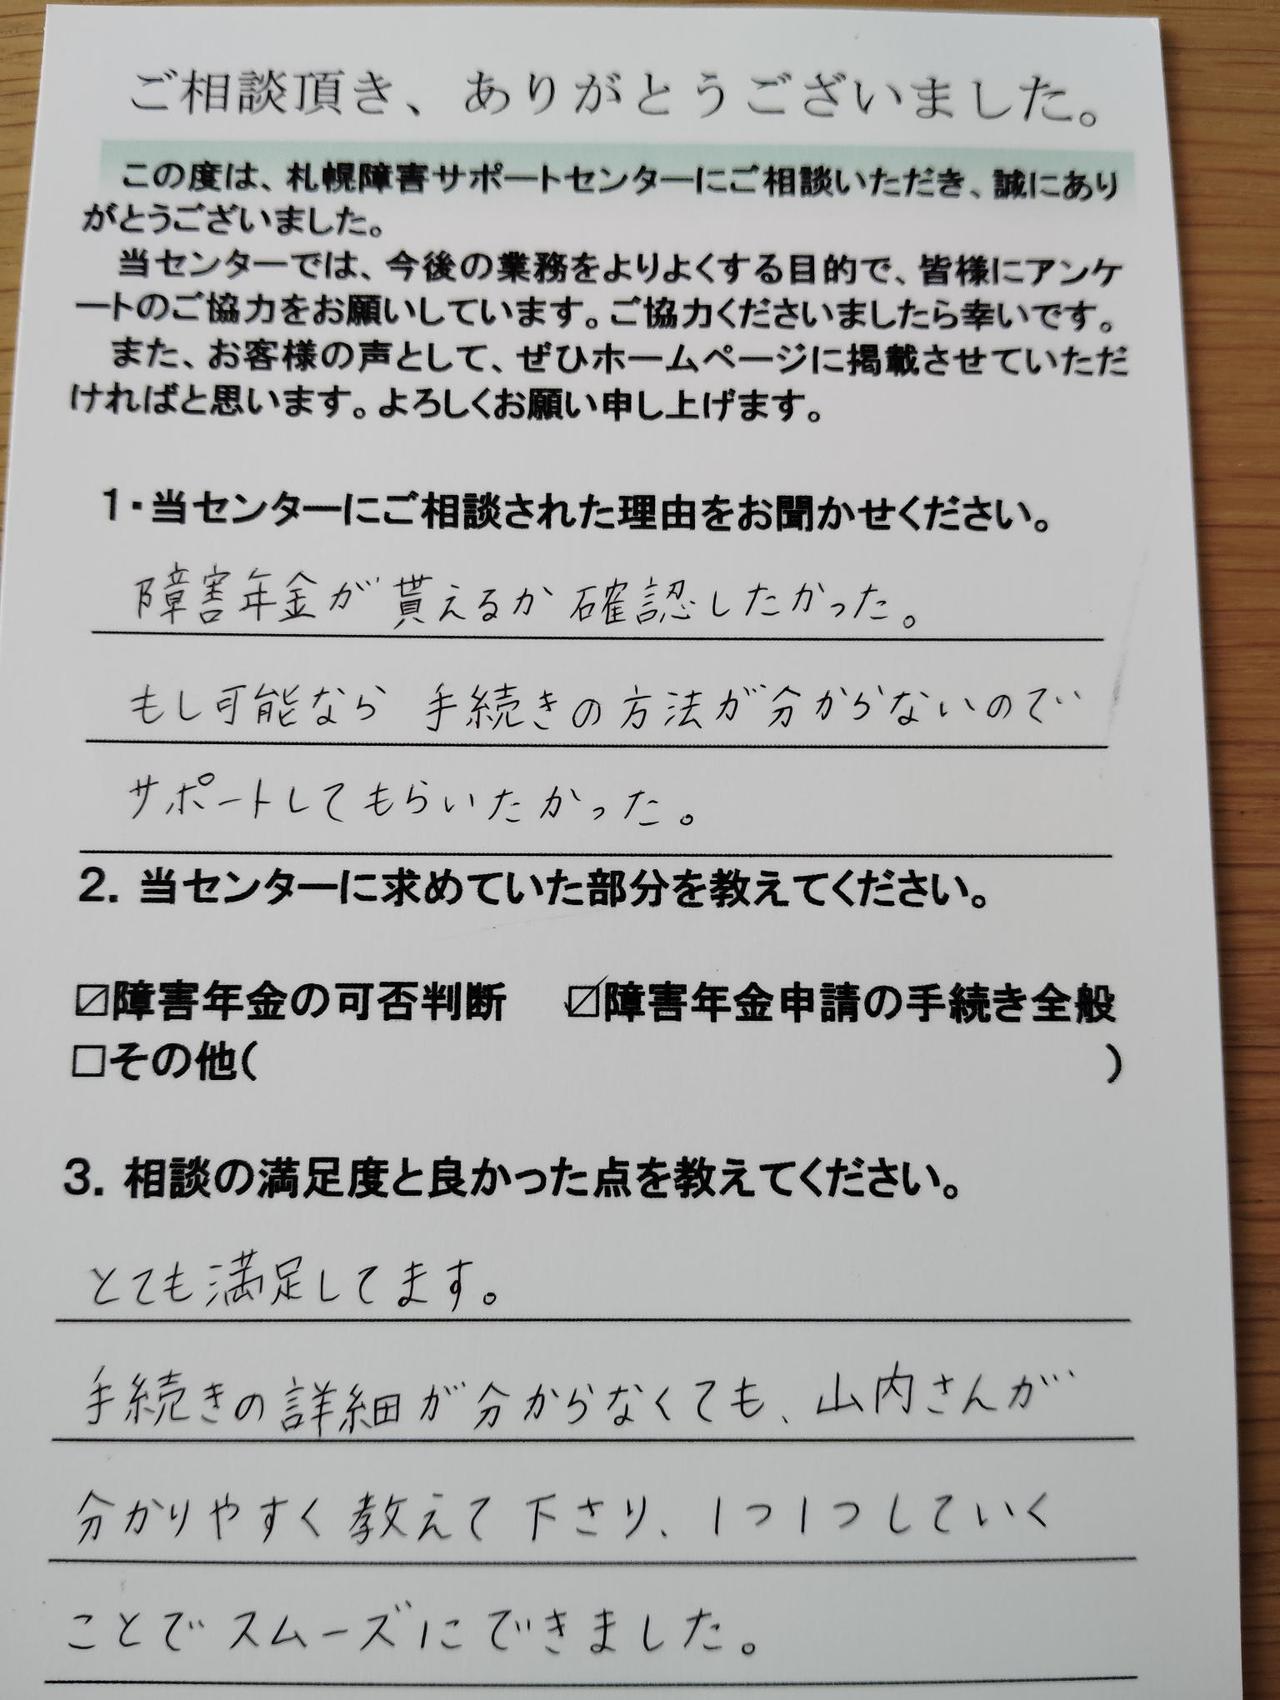 ご相談頂き、ありがとうございました。
この度は、札幌障害サポートセンターにご相談いただき、誠にあり
がとうございました。
当センターでは、今後の業務をよりよくする目的で、皆様にアンケ
ートのご協力をお願いしています。ご協力くださいましたら幸いです。
また、お客様の声として、ぜひホームページに掲載させていただ
ければと思います。よろしくお願い申し上げます。
1・当センターにご相談された理由をお聞かせください。
障害年金が貰えるか確認したかった。
もし可能なら 手続きの方法が分からないので
サポートしてもらいたかった。
2. 当センターに求めていた部分を教えてください。
☑障害年金の可否判断 ☑障害年金申請の手続き全般
□その他( )
3. 相談の満足度と良かった点を教えてください。
とても満足してます。
手続きの詳細が分からなくても、山内さんが
分かりやすく教えて下さり、1つ1つしていく
ことでスムーズにできました。